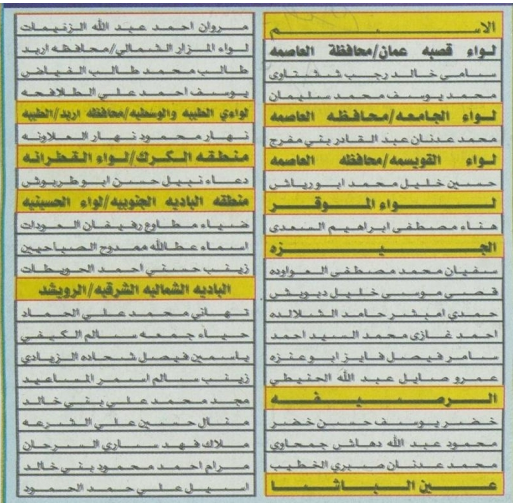 الاسم
لواء قصبه عمان/محافظة العاصمه
سامي خالد رجب ششتاوي
محمد يوسف محمد سليمان
لواء الجامعه/محافظه العاصمه
احمد عدنان عبد القادر بني مفرج
لواء القويسمه/محافظه العاصمه
حسين خليل محمد ابورياش
لواء الموقر
هناء مصطفى ابراهيم السعدي
الجيزه
سفيان محمد مصطفى العواوده
قصي موسى خليل درويش
حمدي امبشر حامد الشلالده
احمد غازي محمد السيد احمد
سامر فيصل فايز ابو عنزه
عمرو صايل عبد الله الحنيطي
الرصيفه
خضر يوسف حسن خضر
محمود عبد الله دهاش جمحاوي
محمد عدنان صبري الخطيب
عين الباشا
مروان احمد عبد الله الزغيمات
لواء المزار الشمالي/محافظه اربد
طالب محمد طالب الفياض
يوسف احمد علي الطلافحه
لواءي الطيبه والوسطيه/محافظه اربد/الطيبه
نهار محمود نهار العلاونه
منطقه الكرك/لواء القطرانه
دعاء نبيل حسن ابو طربوش
منطقه الباديه الجنوبيه/لواء الحسينيه
ضياء مطاوع رفيفان العودات
اسماء عطالله ممدوح الصباحيين
زينب حسني احمد الحويطات
الباديه الشماليه الشرقيه/الرويشد
تهاني محمد علي الحماد
حياء جمعه سالم الكيفي
ياسمين فيصل شحاده الزيادي
زينب سالم اسمر المساعيد
مجد محمد علي بني خالد
منال حسين علي الشرعه
ملاك فهد ساري السرحان
مرام احمد محمود بني خالد
اسيل علي حمد الحمود